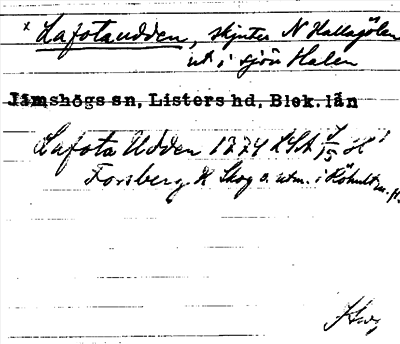 x Lafotaudden, skjuter N Hallagölen
ut i sjön Halen
Jämshögs sn, Listers hd, Blek. län
Lafota Udden 1774 LSA
Forsberg Skog o. utm. i Röhult m. fl.